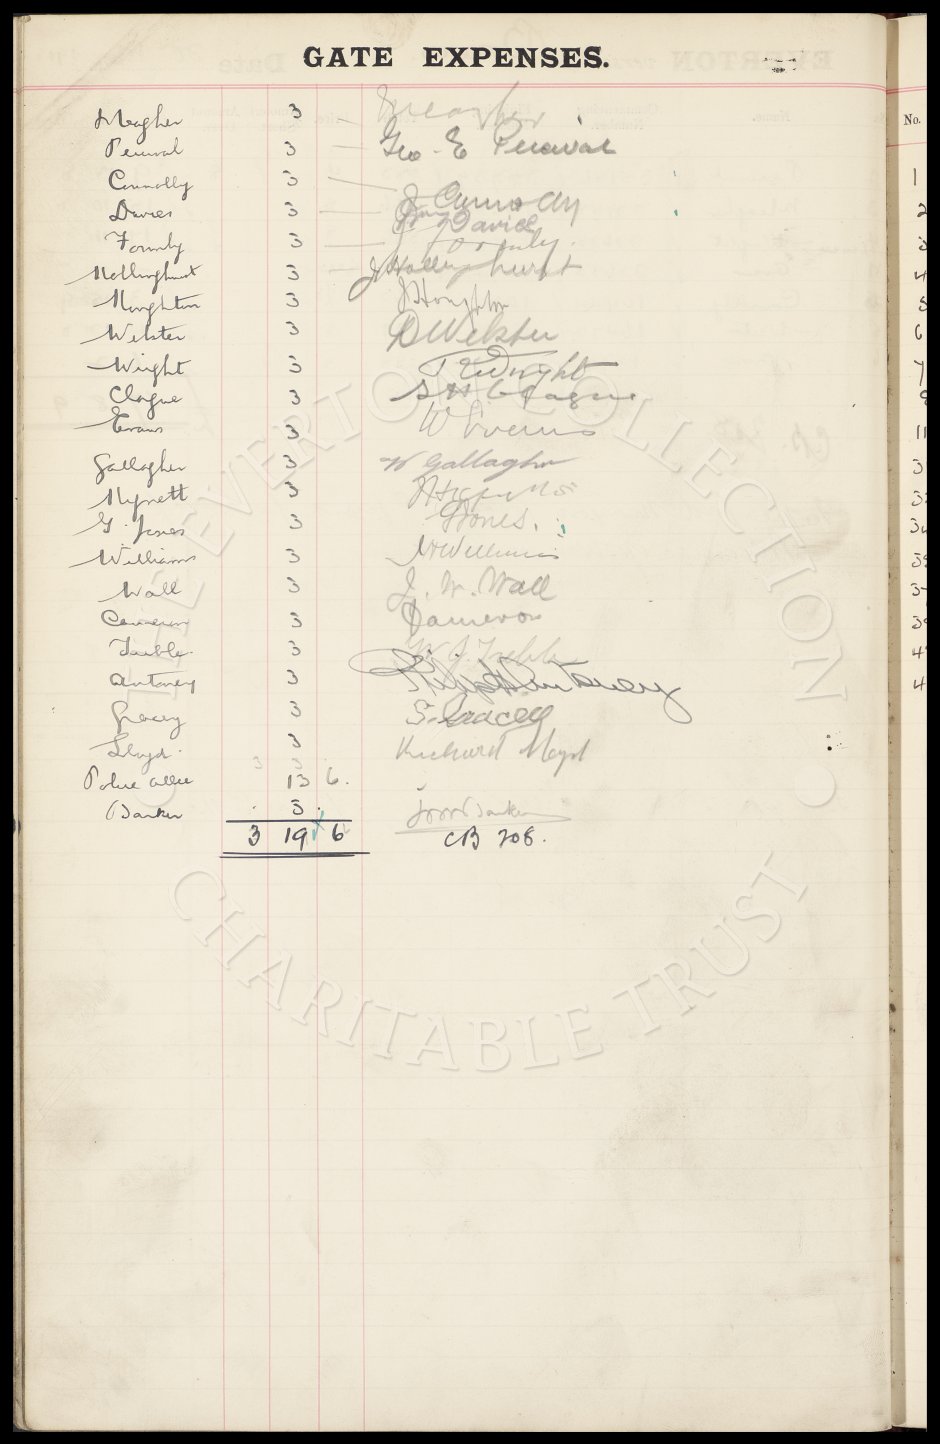 GATE EXPENSES.
No.
Meagher 3
Percival 3 Geo. E Percival
Connolly 3
Davies 3 Davies
Formby 3 Formby.
Hollinghurst 3 J Hollinghurst
Houghton 3 J Houghton
Webster 3 D Webster
Wright 3 Wright
Clague 3 Clague
Evans 3 W Evans
Gallagher 3 W Gallagher
3
G. Jones 3 G Jones.
Williams 3 W Williams
Wall 3 J. W. Wall
Cameron 3 Cameron
3 W J
Antoney 3 Philip H Antoney
Gracey 3 S. Gracey
Lloyd 3 Richard Lloyd
Police 13 6.
Barker 3 Barker
3 19 6 CB 208.
THE EVERTON COLLECTION
CHARITABLE TRUST